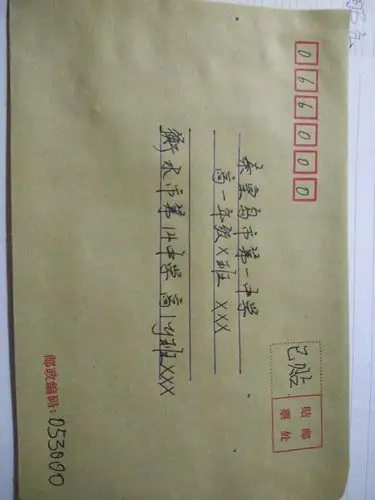 066000
贴邮
票处
已贴
秦皇岛市第一中学
高一年级X班 XXX
衡水市第14中学 高班XXX
邮政编码:053000